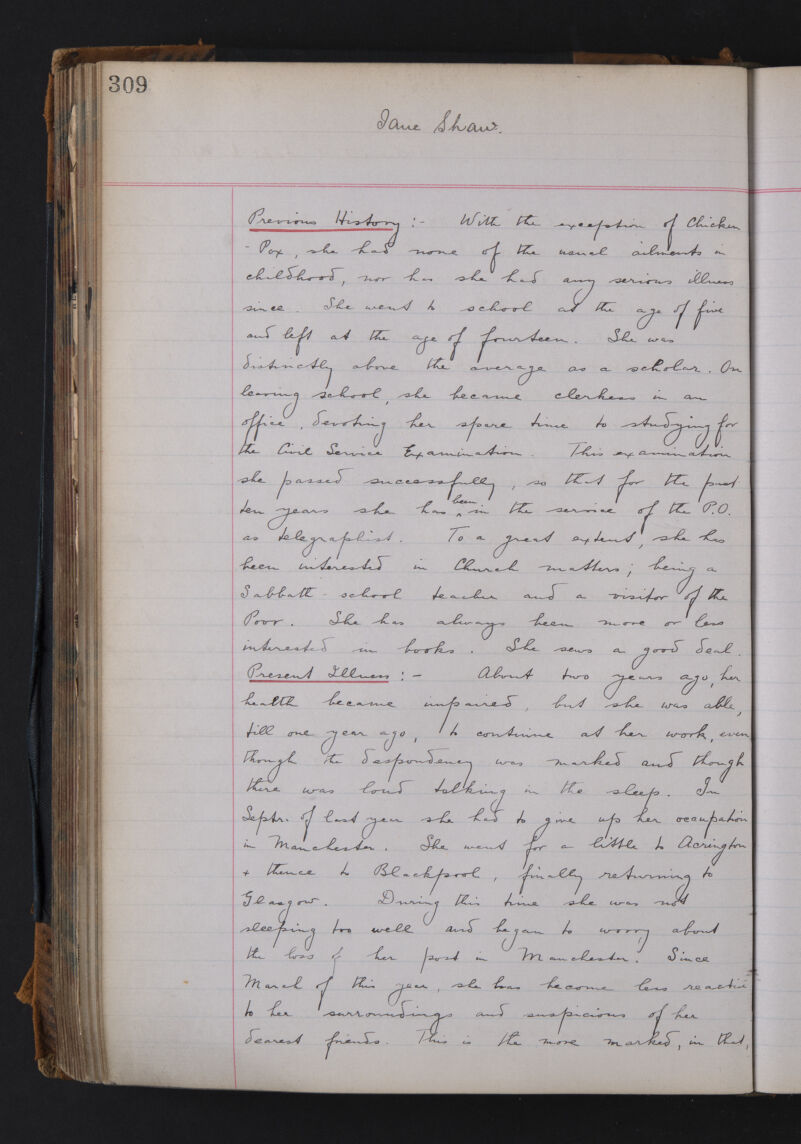 309
Jane Shaw.
Previous History :- With the exception of Chicken
- Pox, she had none of the usual ailments in
childhood, nor has she had any serious illness
since. She went to school at the age of five
and left at the age of fourteen. She was
distinctly above the average as a scholar. On
leaving school, she became clerkess in an
office, devoting her spare time to studying for
the Civil Service Examination. This examination
she passed successfully, so that for the past
ten years she has been in the service of the P.O.
as telegraphist. To a great extent, she has
been interested in Church matters; being a
Sabbath-school teacher and a visitor of the
Poor. She has always been more or less
interested in books. She sews a good deal.
Present Illness :- About two years ago, her
health became impaired, but she was able,
till one year ago, to continue at her work, even
though the despondency was marked and though
there was loud talking in the sleep. In
Septr. of last year she had to give up her occupation
in Manchester. She went for a little to Acrington
+ thence to Blackpool, finally returning to
Glasgow. During this time she was not
sleeping too well and began to worry about
the loss of her post in Manchester. Since
March of this year, she has become less reactive
to her surroundings and suspicious of her
dearest friends. This is the more marked, in that,